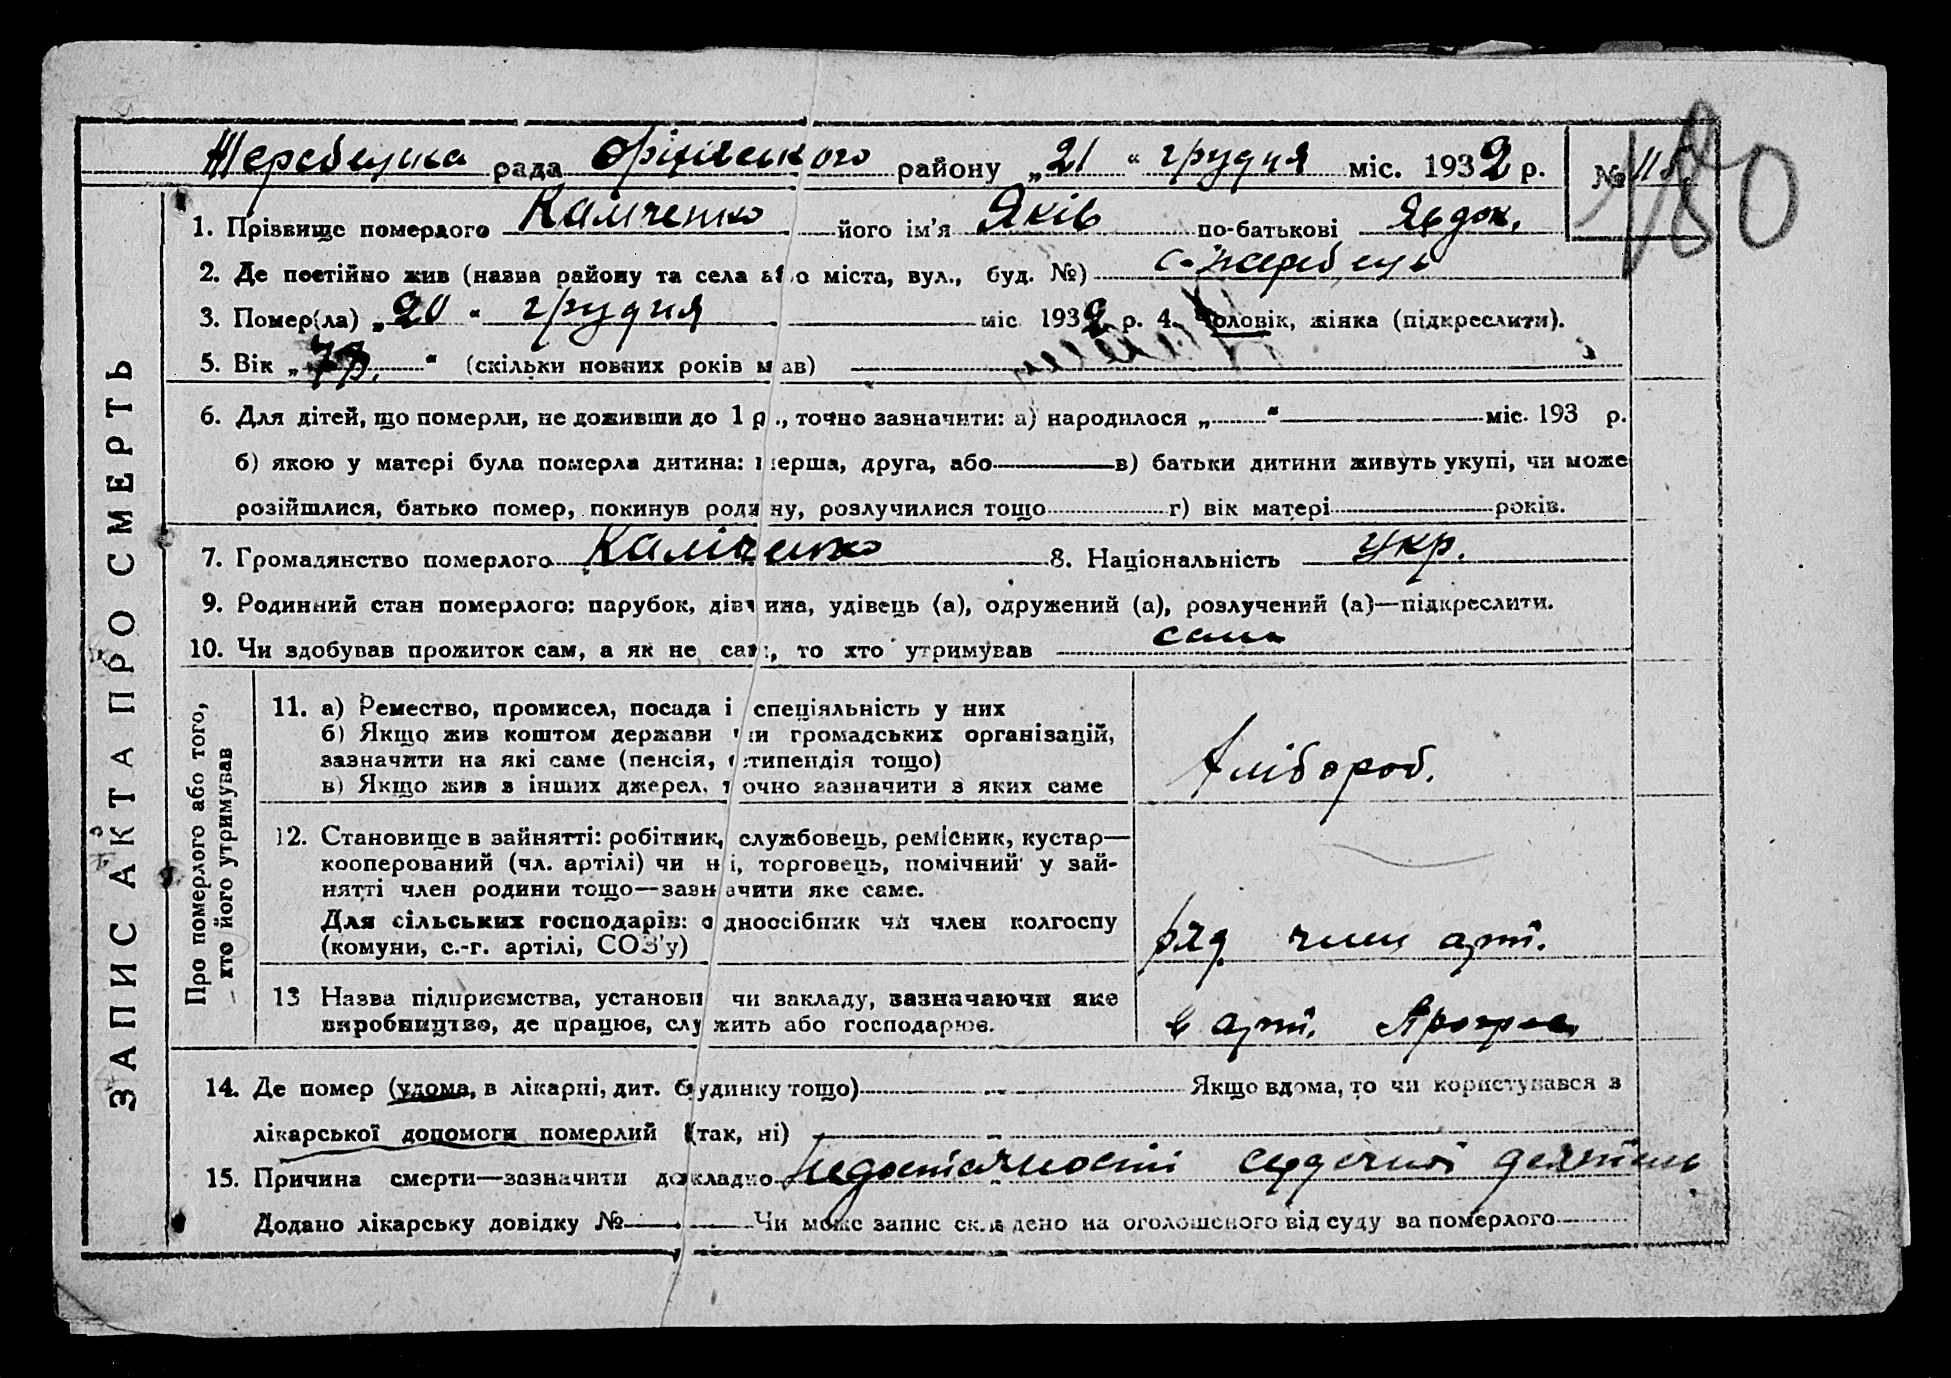 ЗАПИС АКТА ПРО СМЕРТЬ
Жеребецька рада Оріхівського району „21“ грудня міс. 1932 р. № 115 180
1. Прізвище померлого Камченко його ім'я Яків по-батькові Явдок.
2. Де постійно жив (назва району та села або міста, вул., буд. №) с. Жеребець
3. Помер(ла) „20“ грудня міс 1932 р. 4. Чоловік, жінка (підкреслити).
5. Вік „73 р.“ (скільки повних років мав)
6. Для дітей, що померли, не доживши до 1 р., точно зазначити: а) народилося „ “ міс. 193 р.
б) якою у матері була померла дитина: перша, друга, або в) батьки дитини живуть укупі, чи може
розійшлися, батько помер, покинув родину, розлучилися тощо г) вік матері років.
7. Громадянство померлого Камченко 8. Національність укр.
9. Родинний стан померлого: парубок, дівчина, удівець (а), одружений (а), розлучений (а)—підкреслити.
10. Чи здобував прожиток сам, а як не сам, то хто утримував сам
Про померлого або того,
хто його утримував
11. а) Ремество, промисел, посада і спеціяльність у них
б) Якщо жив коштом держави чи громадських організацій,
зазначити на які саме (пенсія, стипендія тощо)
в) Якщо жив з інших джерел, точно зазначити з яких саме
хлібороб.
12. Становище в зайнятті: робітник, службовець, ремісник, кустар—
кооперований (чл. артілі) чи ні, торговець, помічний у зай-
нятті член родини тощо—зазначити яке саме.
Для сільських господарів: одноосібник чи член колгоспу
(комуни, с.-г. артілі, СОЗ'у)
ряд. член арт.
13 Назва підприємства, установи чи закладу, зазначаючи яке
виробництво, де працює, служить або господарює.
в арт. Прогрес
14. Де помер (удома, в лікарні, дит. будинку тощо) Якщо вдома, то чи користувався з
лікарської допомоги померлий (так, ні)
15. Причина смерти—зазначити докладно Недостачності сердечной деятель
Додано лікарську довідку № Чи може запис складено на оголошеного від суду за померлого